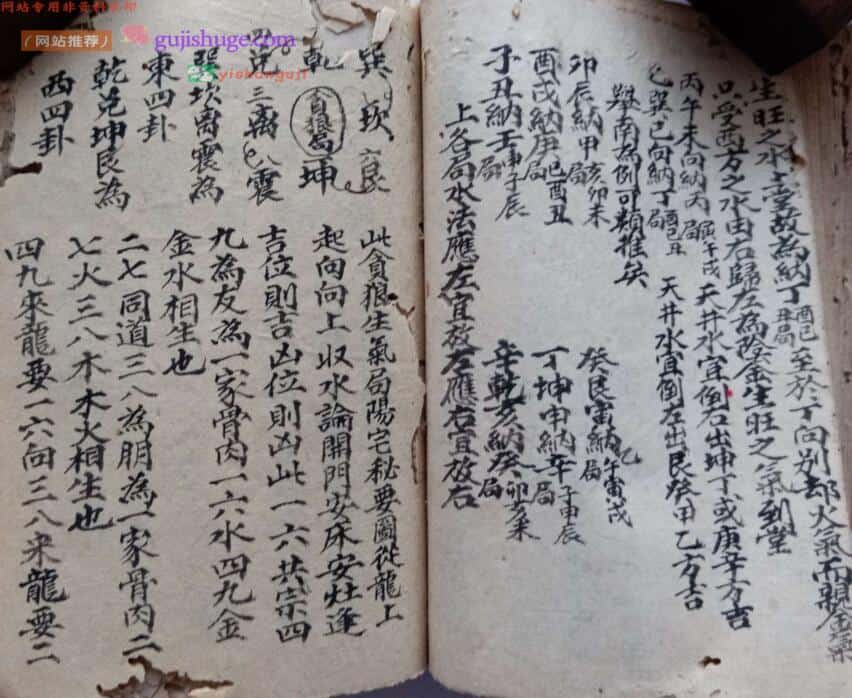 网站专用非资料水印
（网站推荐） gujishuge.com
yishanguji
生旺之水上堂故為納丁酉巳丑局至於丁向別却火氣而親金氣
只受西方之水由右歸左為陰金生旺之氣到堂
丙午未向納丙局寅午戌天井水宜倒右出坤丁或庚辛方吉
巳巽巳向納丁局酉巳丑天井水宜倒左出艮癸甲乙方吉
舉南為例可類推矣
卯辰納甲局亥卯未 癸艮寅納乙局午寅戌
酉戌納庚局巳酉丑 丁坤申納辛局子申辰
子丑納壬局申子辰 辛乾亥納癸局卯亥未
上各局水法應左宜放左應右宜放右
巽 坎 六艮
乾 貪狼局 一坤
兌三 离 八震
巽坎离震為
東四卦
乾兌坤艮為
西四卦
此貪狼生氣局陽宅秘要圖從龍上
起向向上収水論開門安床安灶逢
吉位則吉凶位則凶此一六共宗四
九為友為一家骨肉一六水四九金
金水相生也
二七同道三八為朋為一家骨肉二
七火三八木木火相生也
四九來龍要一六向三八來龍要二